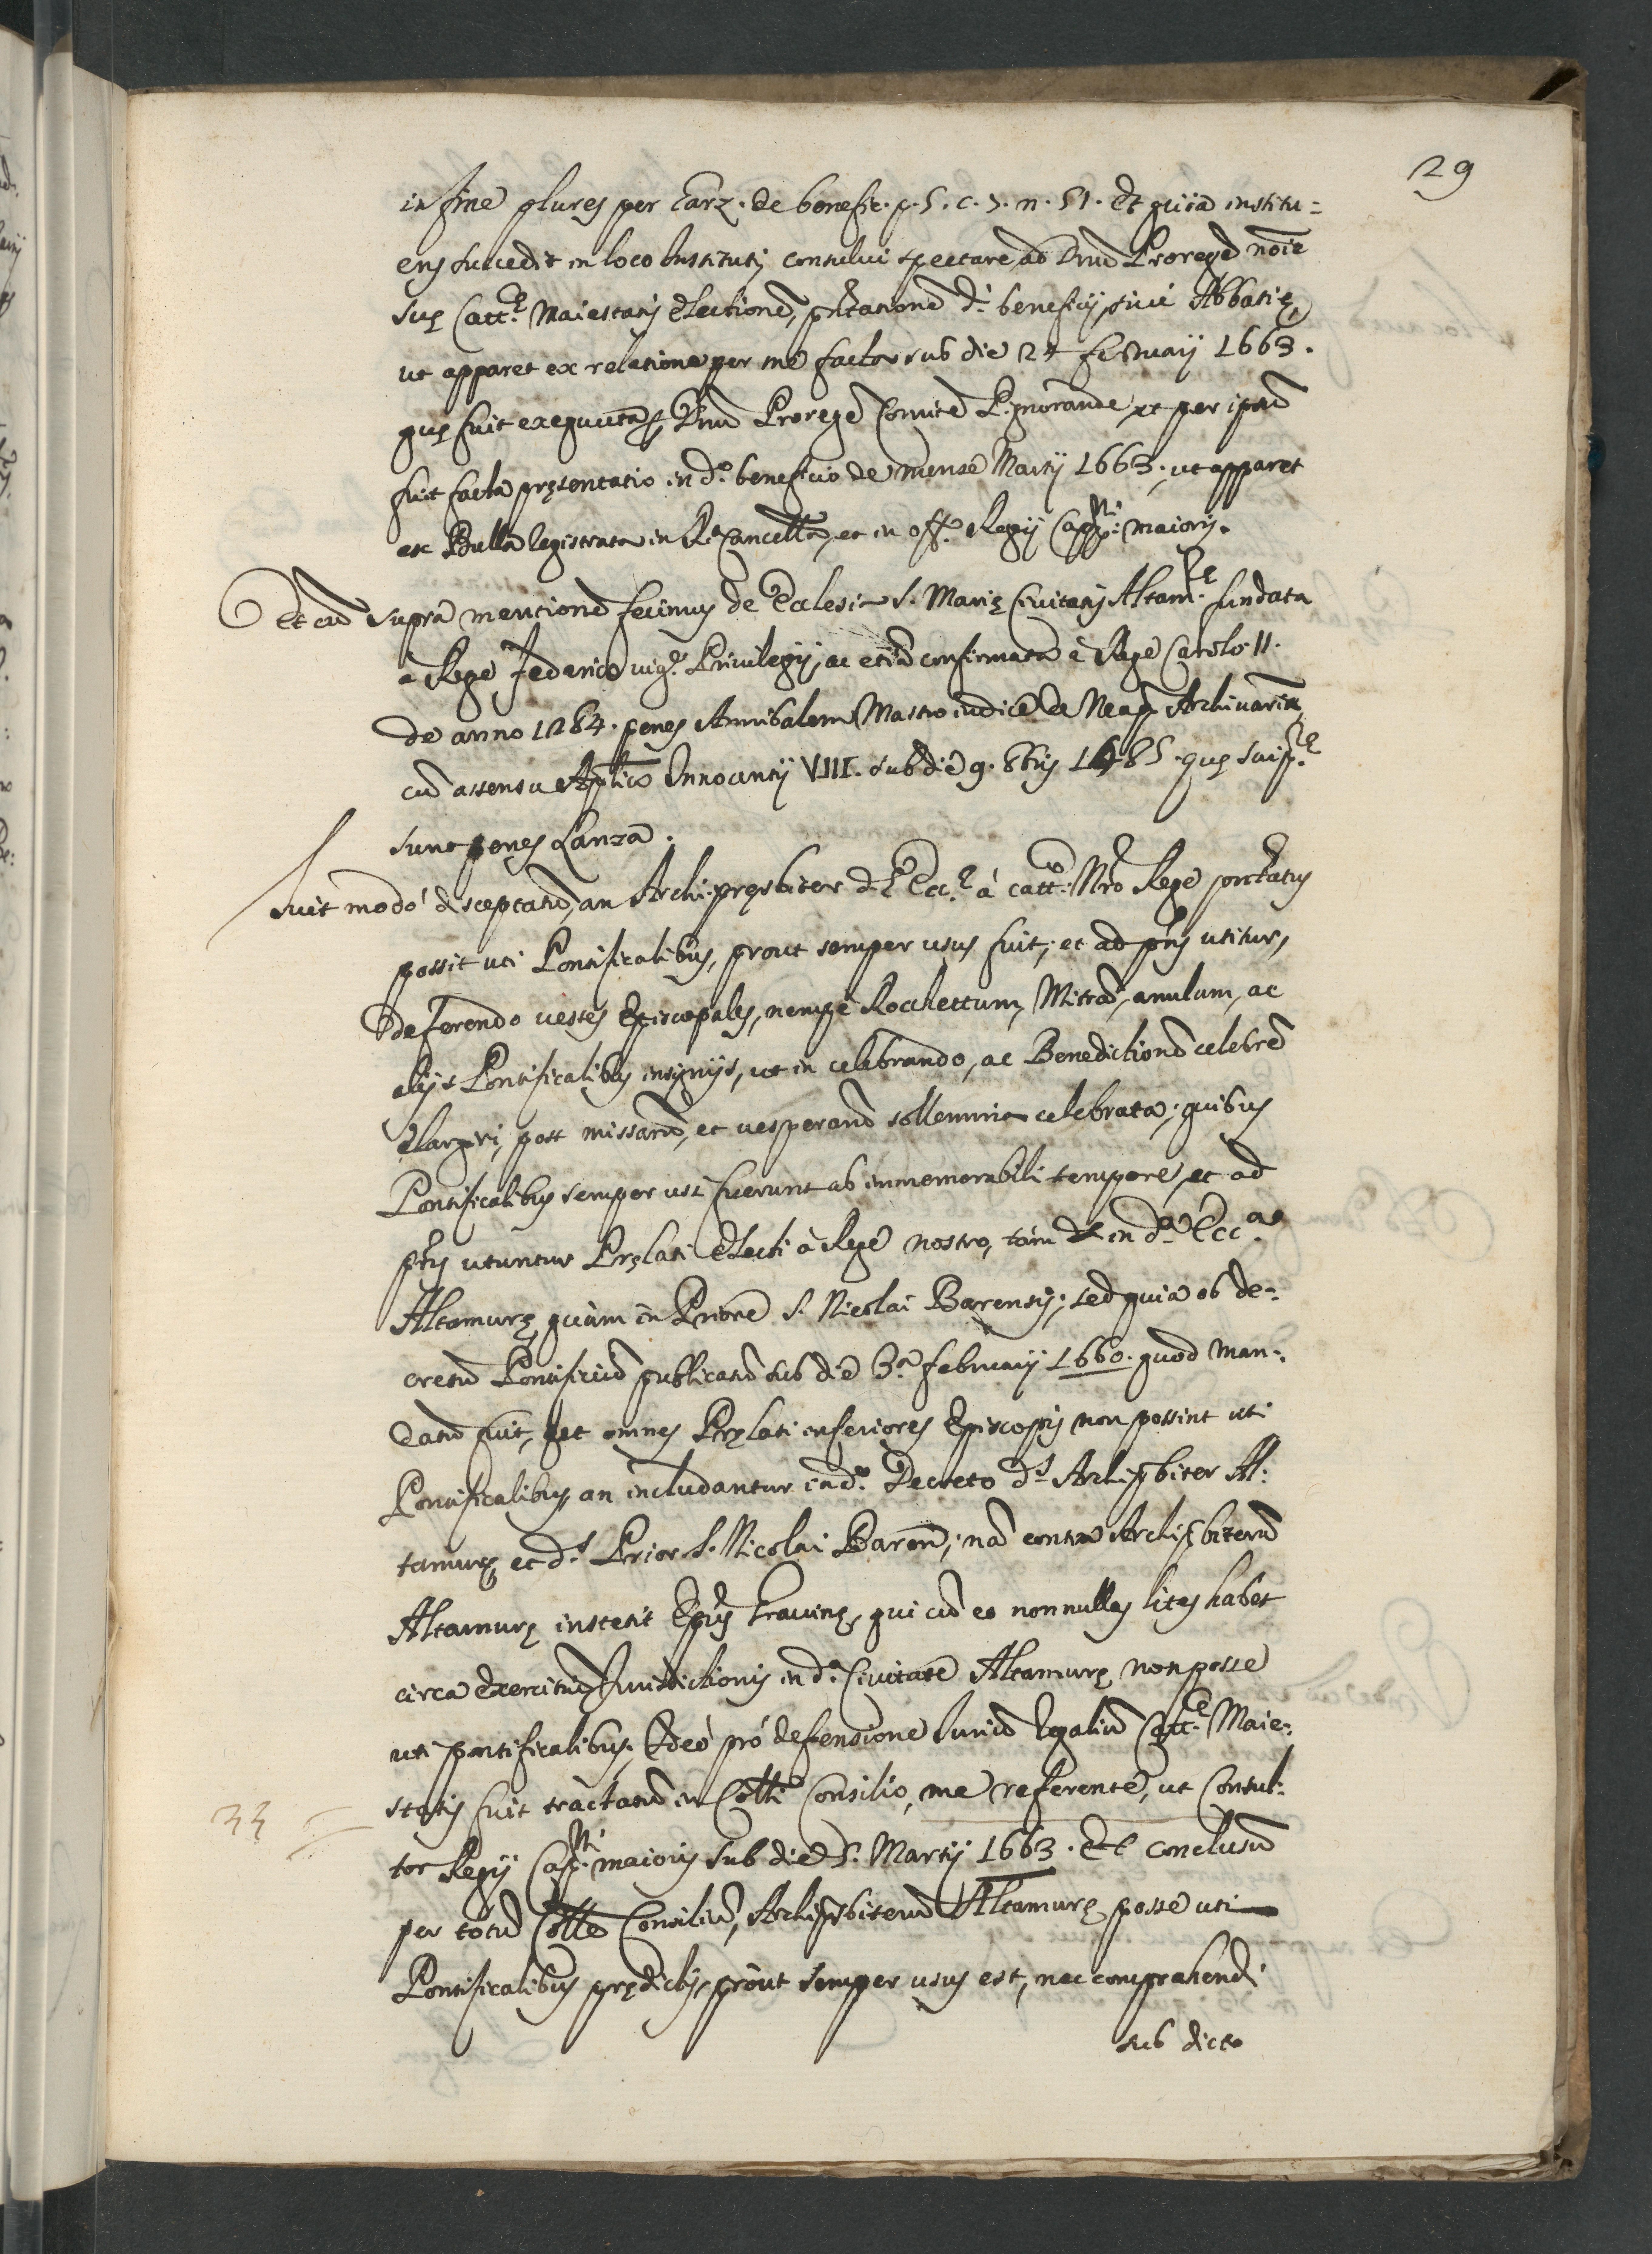 29
in fine plures per Garz. de benefic. p. 5. c. 5. n. 51. Et quia institu=
ens succedit in loco Instituti consului spectare ad Dnũ Proregẽ noĩe
suę Catt.ę Maiestatis electionẽ, pñtationẽ d.i beneficij siuè Abbatię,
ut apparet ex relatione per me facta sub die 24 februarij 1663.
quę fuit exequuta p Dnũ Proregẽ Comitẽ Pignorandę, et per ipsũ
fuit facta pręsentatio in d.o beneficio de mense Martij 1663. ut apparet
ex Bulla registrata in R. Cancellã, et in off.o Regij Capp.ni maioris.
Et cũ supra mentionẽ fecimus de Ecclesia S. Marię Ciuitatis Altam.ę fundata
à Rege Federico uig.e Priuilegij, ac etiã confirmata à Rege Carolo. II.
de anno 1284. penes Annibalem Mastroiudicẽ de Neap. Archiuariũ,
cũ assensu Aplico Innocentij VIII. sub die 9. 8bris 1485. quę
sunt penes Lanza.
Fuit modo disceptatũ, an Archipręsbiter d.ę Ecc.ę à catt.co Nr̃o Rege pñtatus
possit uti Pontificalibus, prout semper usus fuit, et ad pñs utitur,
deferendo uestes Episcopales, nempè Rocchettum, Mitrã, anulum, ac
alijs Pontificalibus insignijs, ut in celebrando, ac Benedictionẽ celebrẽ
elargiri, post missarũ, et uesperarũ sollemnia celebrata, quibus
Pontificalibus semper usi fuerunt ab immemorabili tempore, et ad
pñs utuntur Pręlati electi à Rege nostro, tàm in d.a Ecc.a
Altamurę quàm in Priore S. Nicolai Barensis; sed quia ob de-
cretũ Pontificiũ publicatũ sub die 3.a februarij 1660. quod man-
datũ fuit, ut omnes Pręlati inferiores Episcopis non possint uti
Pontificalibus, an includantur in d.o Decreto d.s Archipbiter Al-
tamurę, et d.s Prior S. Nicolai Barẽn; nã contra Archipbiterũ
Altamurę insteṫit Epũs Grauinę, qui cũ eo nonnullas lites habet
circa exercitiũ Iurisdictionis in d.a Ciuitate Altamurę non posse
uti pontificalibus, Ideò prò defensione Iuriũ Regaliũ Catt.ę Maie-
statis fuit tractatũ in Colli Consilio, me referente, ut Consul-
33
tor Regij Cap.ni maioris sub die 5. Martij 1663. Et conclusũ
per totũ Colle Consiliũ, Archipbiterũ Altamurę posse uti
Pontificalibus prędictis, prout semper usus est, nec comprahendi
sub dicto